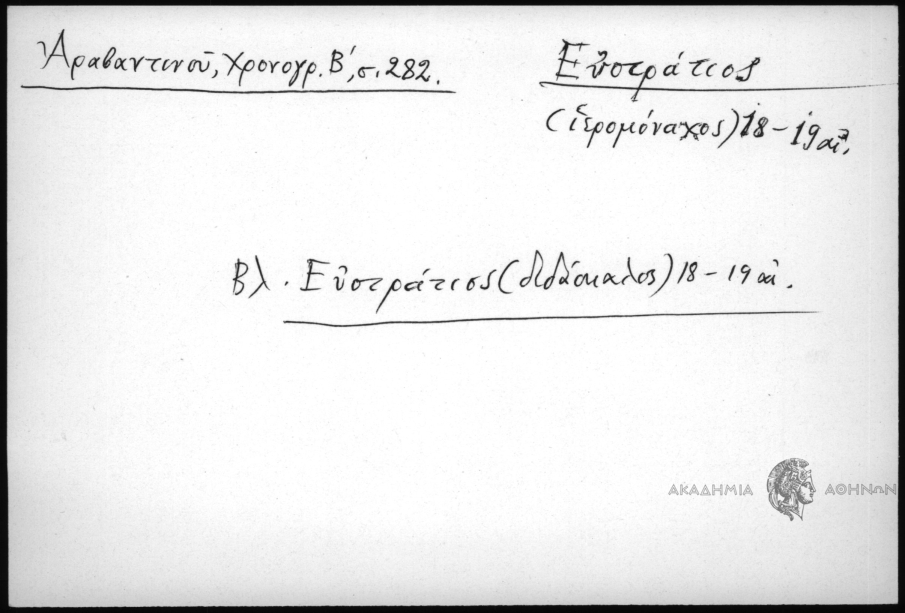 Ἀραβαντινοῦ, Χρονογρ. Β', σ. 282.
Εὐστράτιος
(ἱερομόναχος) 18 - 19 αἰ.
Βλ. Εὐστράτιος (διδάσκαλος) 18 - 19 αἰ.
ΑΚΑΔΗΜΙΑ ΑΘΗΝΩΝ